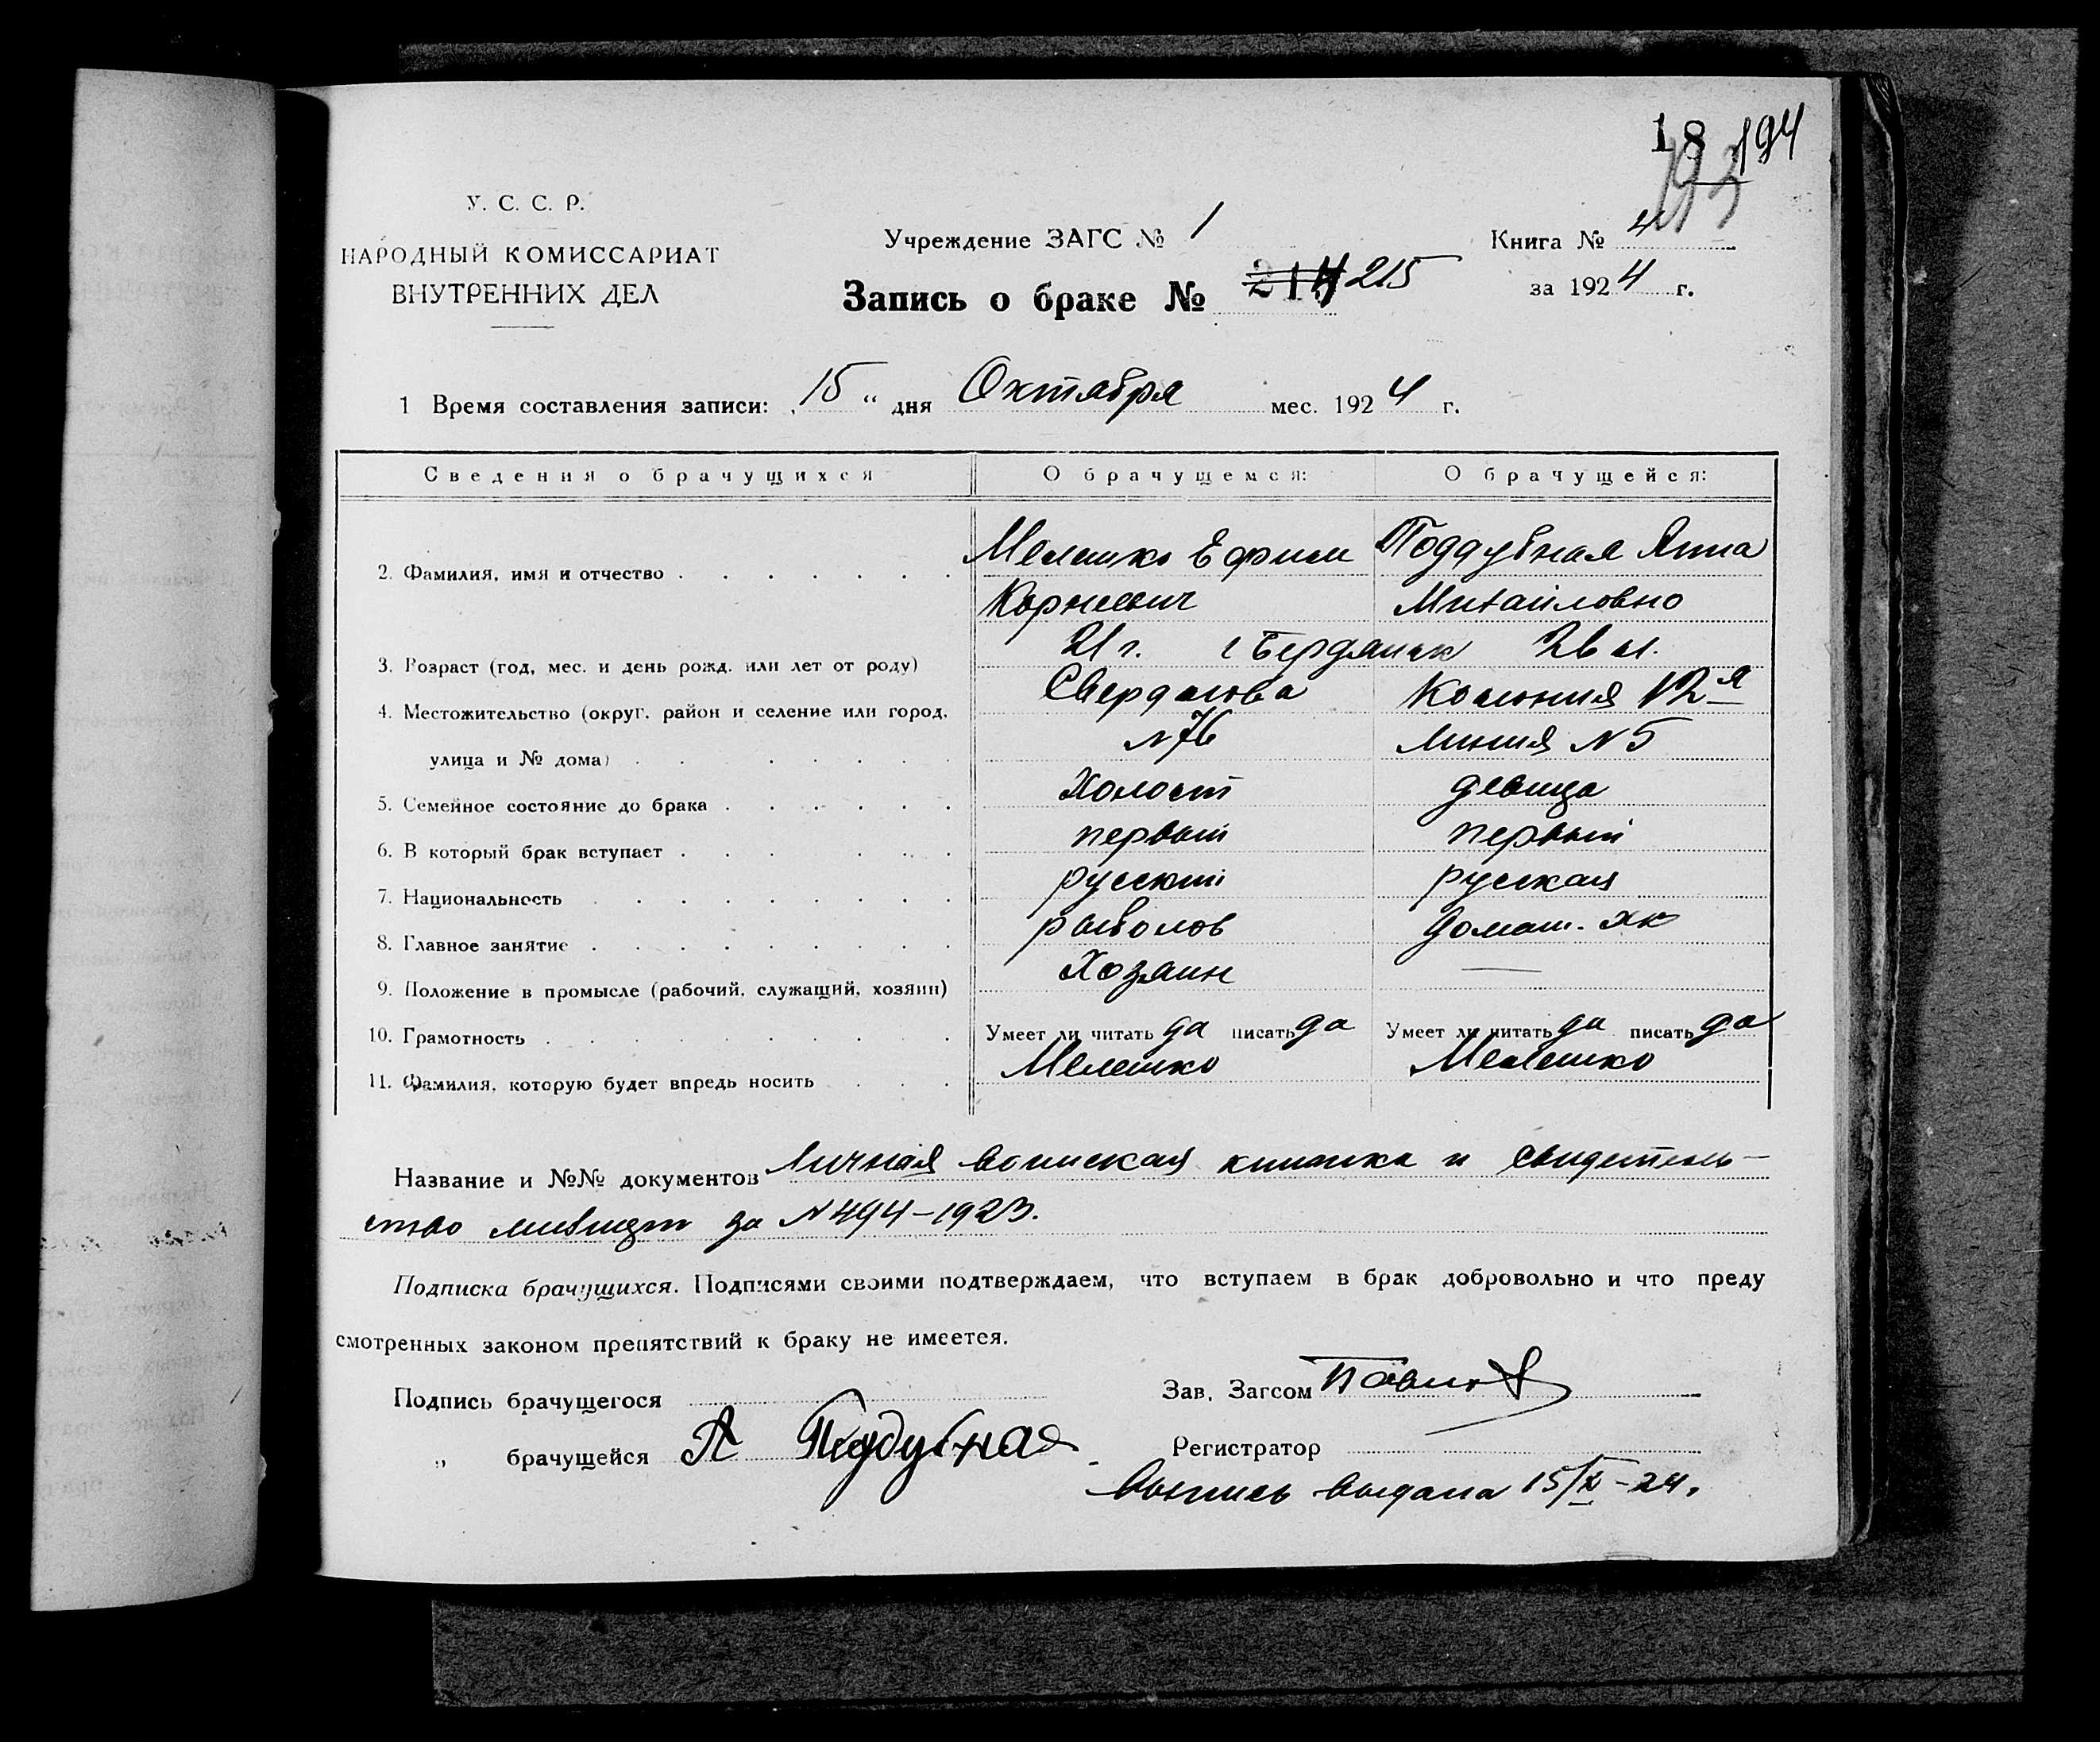 18 194
193
У. С. С. Р.
НАРОДНЫЙ КОМИССАРИАТ
ВНУТРЕННИХ ДЕЛ
Учреждение ЗАГС № 1
Запись о браке № 214 215
Книга № 4
за 1924 г.
1 Время составления записи: „15“ дня Октября мес. 1924 г.
Сведения о брачущихся О брачущемся: О брачущейся:
2. Фамилия, имя и отчество Мелешко Ефим Поддубная Анна
Корневич Михайловно
3. Возраст (год, мес. и день рожд. или лет от роду) 21 г. г Бердянск
4. Местожительство (округ, район и селение или город, Свердлова Колония 12я
улица и № дома) N 76 линия N 5
5. Семейное состояние до брака Холост девица
6. В который брак вступает первый первый
7. Национальность русский русская
8. Главное занятие рыболов домаш. хк
9. Положение в промысле (рабочий, служащий, хозяин) Хозяин —
10. Грамотность Умеет ли читать да писать да Умеет ли читать да писать да
11. Фамилия, которую будет впредь носить Мелешко Мелешко
Название и №№ документов Личная воинская книжка и свидетель-
ство за N 494-1923.
Подписка брачущихся. Подписями своими подтверждаем, что вступаем в брак добровольно и что преду
смотренных законом препятствий к браку не имеется.
Подпись брачущегося Зав. Загсом
„ брачущейся А Подубная Регистратор
Выпись выдана 15/X-24.